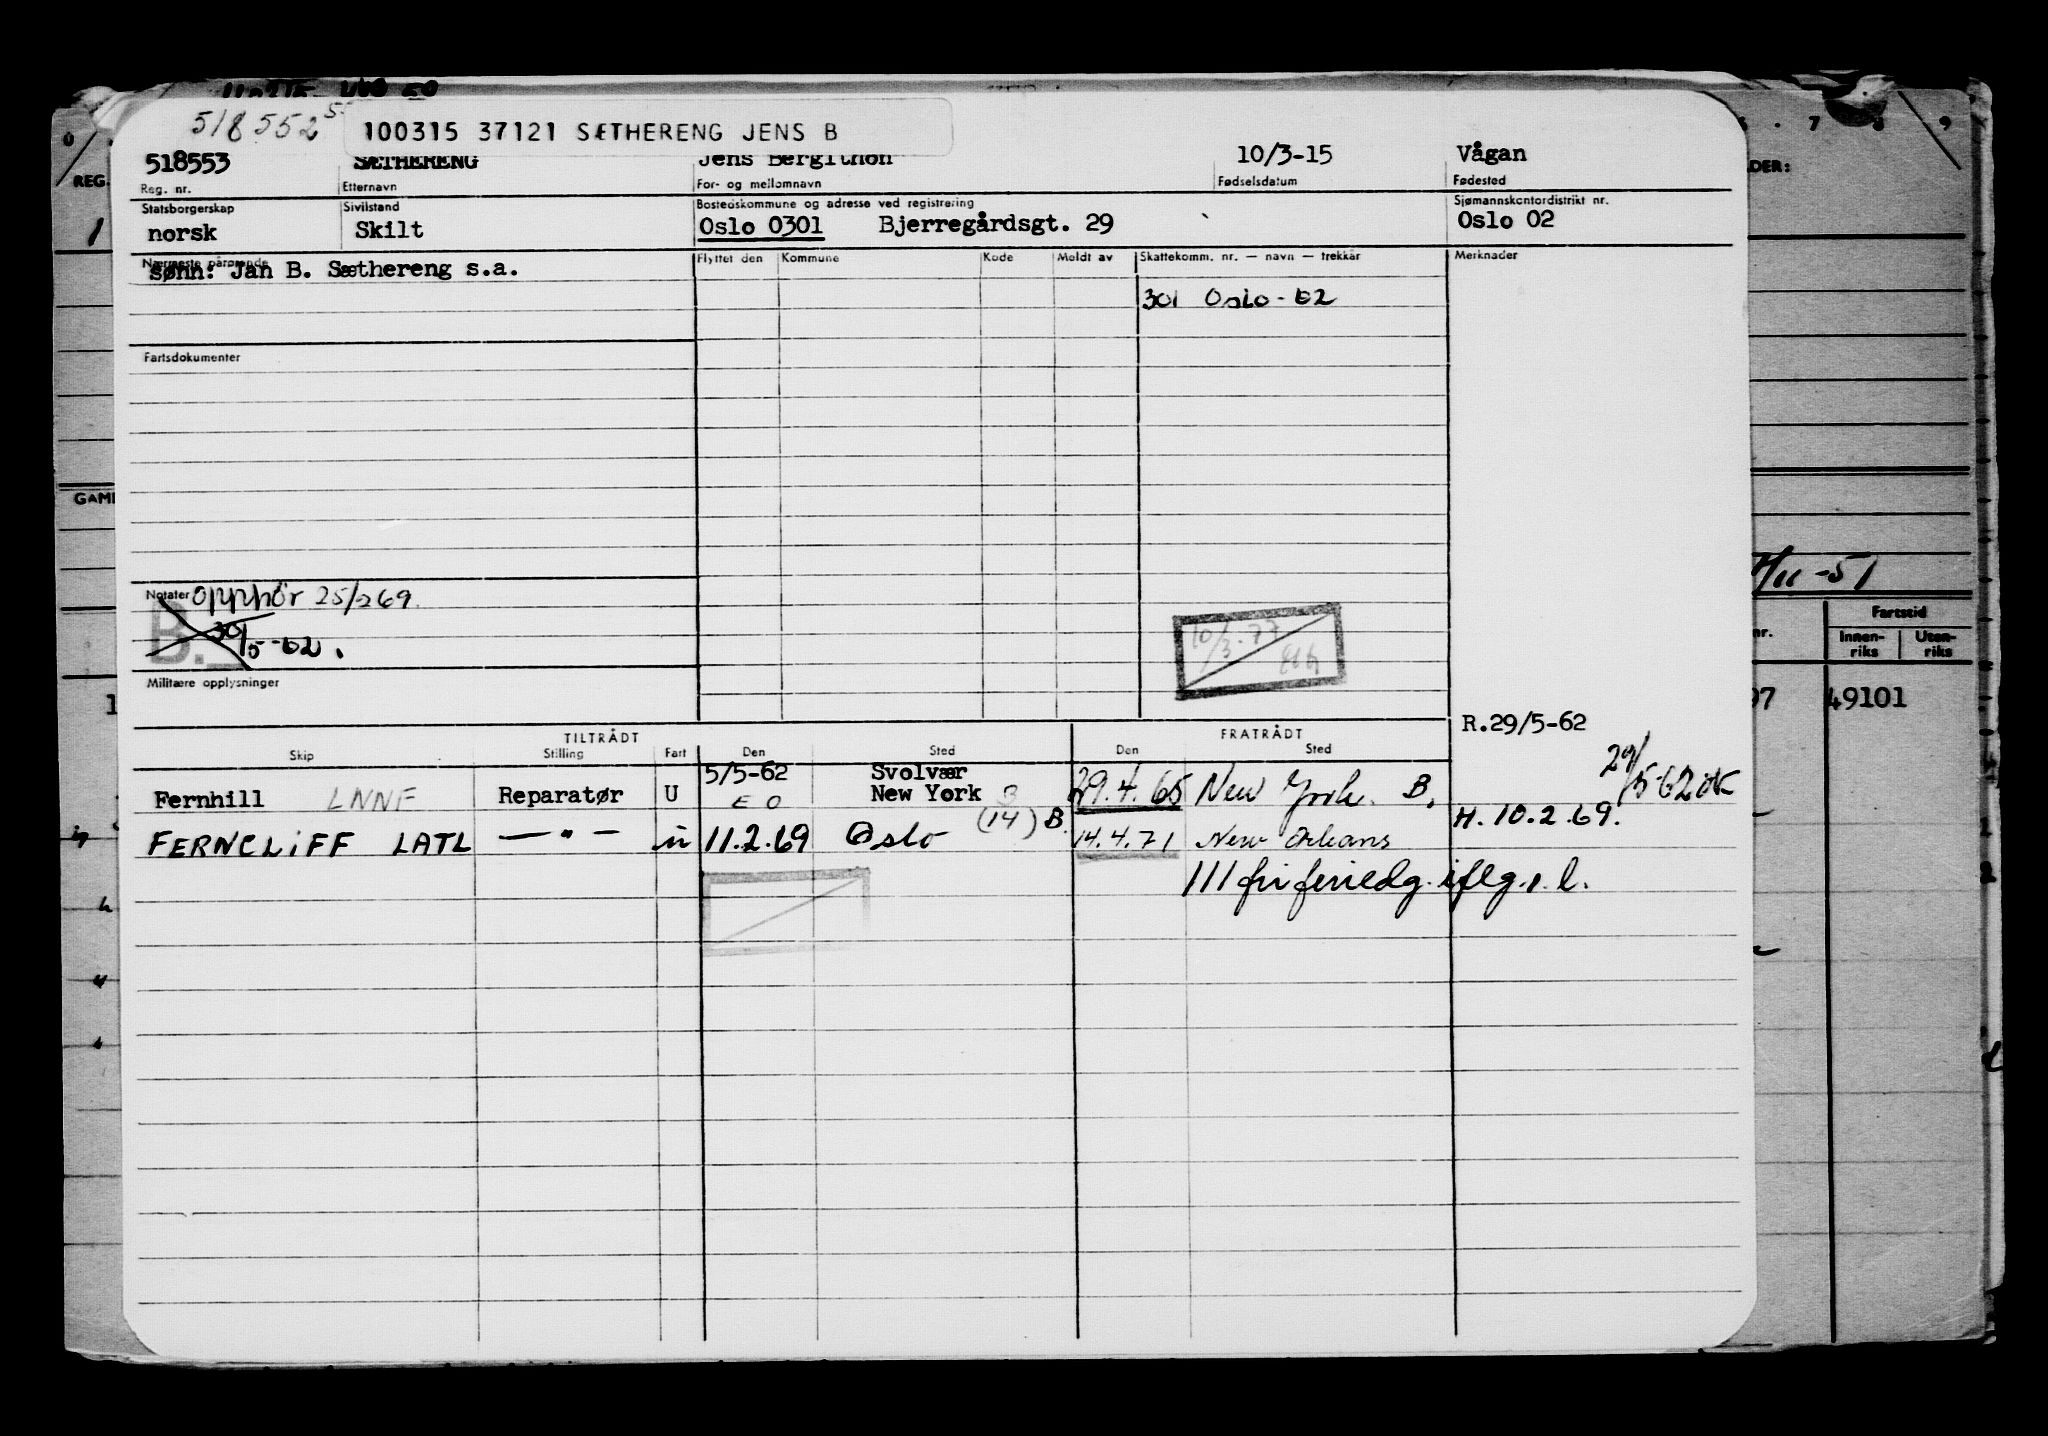 518552
100315 37121 SÆTHERENG JENS B
518553 SÆTHERENG Jens Bergithon 10/3-15 Vågan
Reg. nr. Etternavn For- og mellomnavn Fødselsdatum Fødested
Statsborgerskap Sivilstand Bostedskommune og adresse ved registrering Sjømannskontordistrikt nr.
norsk Skilt Oslo 0301 Bjerregårdsgt. 29 Oslo 02
Nærmeste pårørende Flyttet den Kommune Kode Meldt av Skattekomm. nr. — navn — trekkår Merknader
sønn: Jan B. Sæthereng s.a.
301 Oslo - 62
Fartsdokumenter
Notater Opphör 25/2 69.
B. 30/5-62.
10/3.77
Militære opplysninger
R.29/5-62
TILTRÅDT FRATRÅDT
Skip Stilling Fart Den Sted Den Sted
5/5-62 Svolvær
29/5-62 OK
Fernhill LNNF Reparatør U E O New York 3 29.4.65 New York. B.
H. 10.2.69.
FERNCLIFF LATL — " — u 11.2.69 Oslo (14) B. 14.4.71 New Orleans
111 fri feriedg. iflg. r.l.
REG.
1
GAMI
6 . 7 8 9
ADER:
/11-51
Fartstid
nr. Innen-riks Uten-riks
97 49101